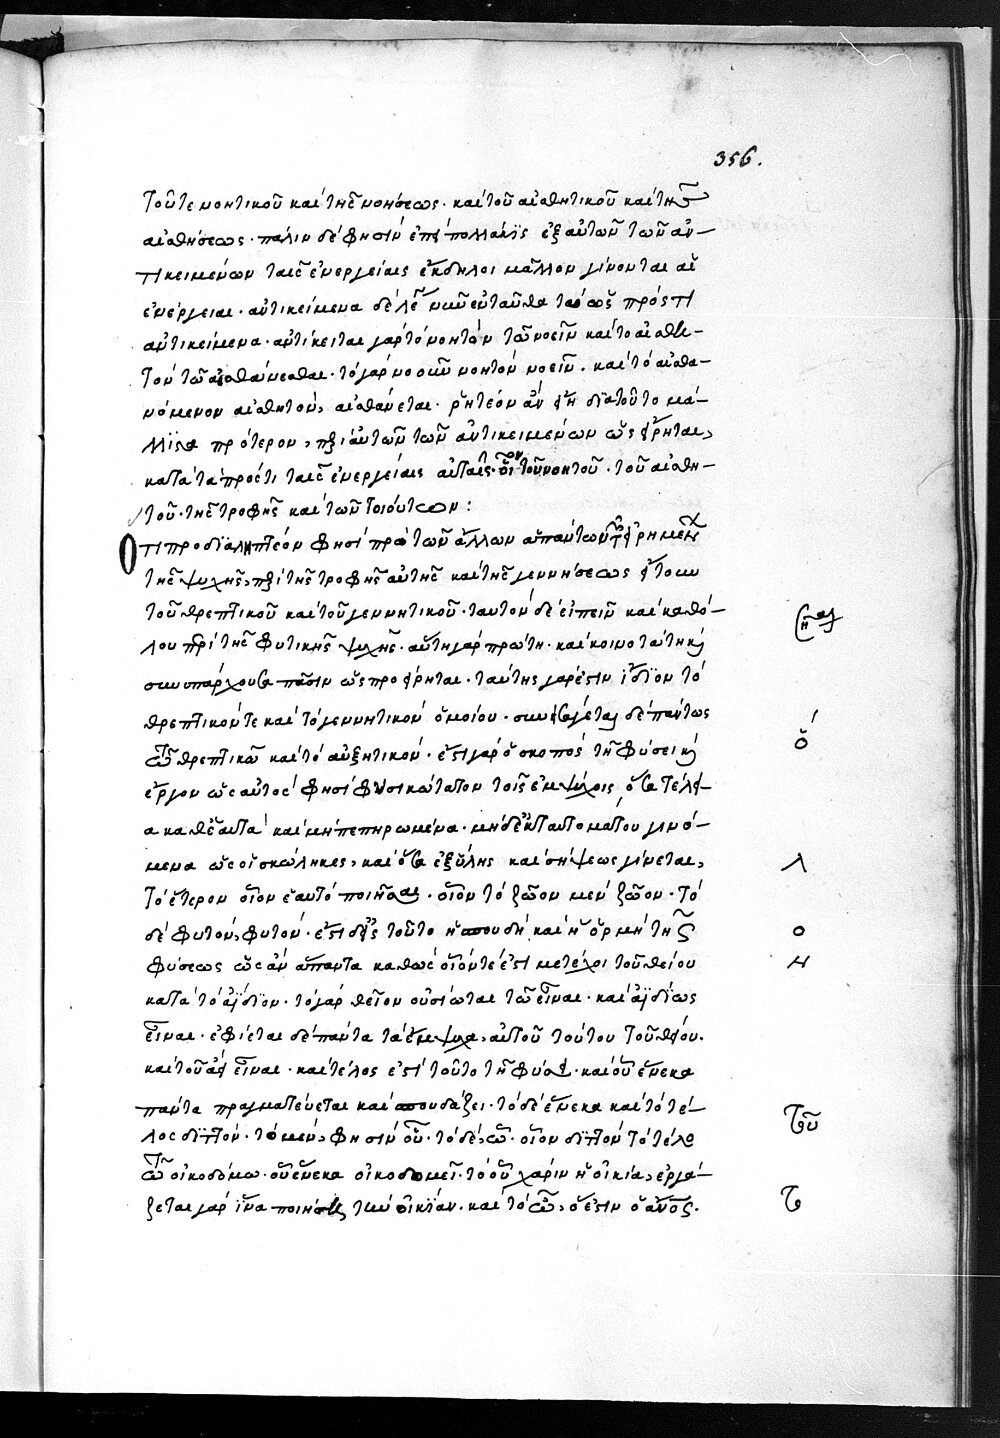 356.
τοῦ τε νοητικοῦ καὶ τῆς νοήσεως· καὶ τοῦ αἰσθητικοῦ καὶ τῆς
αἰσθήσεως· πάλιν δέ φησιν ἐπὶ πολλοῖς ἐξ αὐτῶν τῶν ἀν-
τικειμένων ταῖς ἐνεργείαις ἔκδηλοι μᾶλλον γίνονται αἱ
ἐνέργειαι· ἀντικείμενα δὲ λέγει νῦν ἐνταῦθα τὰ ὡς πρός τι
ἀντικείμενα· ἀντίκειται γὰρ τὸ νοητὸν τῶ νοεῖν καὶ τὸ αἰσθη-
τὸν τῶ αἰσθάνεσθαι· τὸ γὰρ νοοῦν νοητὸν νοεῖν· καὶ τὸ αἰσθα-
νόμενον αἰσθητὸν, αἰσθάνεται· ῥητέον ἂν εἴη διατοῦτο μά-
λιστα πρότερον, περὶ αὐτῶν τῶν ἀντικειμένων ὡς εἴρηται,
κατὰ τὰ πρός τι ταῖς ἐνεργείαις αὐταῖς· οἷον τοῦ νοητοῦ· τοῦ αἰσθη-
τοῦ· τῆς τροφῆς καὶ τῶν τοιούτων:
Ὅτι προδιαληπτέον φησὶ πρὸ τῶν ἄλλων ἁπάντων τῶν εἰρημένων
τῆς ψυχῆς, περὶ τῆς τροφῆς αὐτῆς καὶ τῆς γεννήσεως ἤτουν
τοῦ θρεπτικοῦ καὶ τοῦ γεννητικοῦ· ταυτὸν δὲ εἰπεῖν καὶ καθό-
λου περὶ τῆς φυτικῆς ψυχῆς· αὕτη γὰρ πρώτη· καὶ κοινοτάτη καὶ
συνυπάρχουσα πᾶσιν ὡς προείρηται· ταύτης γάρ ἐστιν ἴδιον τό
θρεπτικόν τε καὶ τὸ γεννητικὸν ὁμοίου· συνάγεται δὲ πάντως
τῶ θρεπτικῶ καὶ τὸ αὐξητικόν· ἔστι γὰρ ὁ σκοπὸς τῆ φύσει καὶ
ἔργον ὡς αὐτός φησι φυσικώτατον τοῖς ἐμψύχοις, ὅσα τέλει-
α καθ' ἑαυτὰ καὶ μὴ πεπηρωμένα· μηδ' ἐκ ταυτομάτου γινό-
μενα ὡς οἱ σκώληκες, καὶ ὅσα ἐξ ὕλης καὶ σήψεως γίνεται,
τὸ ἕτερον οἷον ἑαυτὸ ποιῆσαι· οἷον τὸ ζῶον μὲν ζῶον· τὸ
δὲ φυτὸν, φυτόν· ἔστι δ' εἰς τοῦτο ἡ σπουδὴ καὶ ἡ ὁρμὴ τῆς
φύσεως ὡς ἂν ἅπαντα καθὼς οἷόν τέ ἐστι μετέχοι τοῦ θείου
κατὰ τὸ ἀΐδιον· τὸ γὰρ θεῖον οὐσίωται τῶ εἶναι· καὶ ἀϊδίως
εἶναι· ἐφίεται δὲ πάντα τὰ ἔμψυχα, αὐτοῦ τούτου τοῦ θείου·
καὶ τοῦ ἀεὶ εἶναι· καὶ τέλος ἐστὶ τοῦτο τῆ φύσει· καὶ οὗ ἕνεκα
πάντα πραγματεύεται καὶ σπουδάζει· τὸ δὲ ἕνεκα καὶ τὸ τέ-
λος διττόν· τὸ μὲν, φησὶν οὗ· τὸ δὲ, ὧ· οἷον διττὸν τὸ τέλος
τῶ οἰκοδόμω· οὗ ἕνεκα οἰκοδομεῖ· τὸ οὗ χάριν ἡ οἰκία, ἐργά-
ζεται γὰρ ἵνα ποιήσῃ τὴν οἰκίαν· καὶ τὸ ὧ, ὅ ἐστιν ὁ ἄνος·
ὅ
λ
ο
η